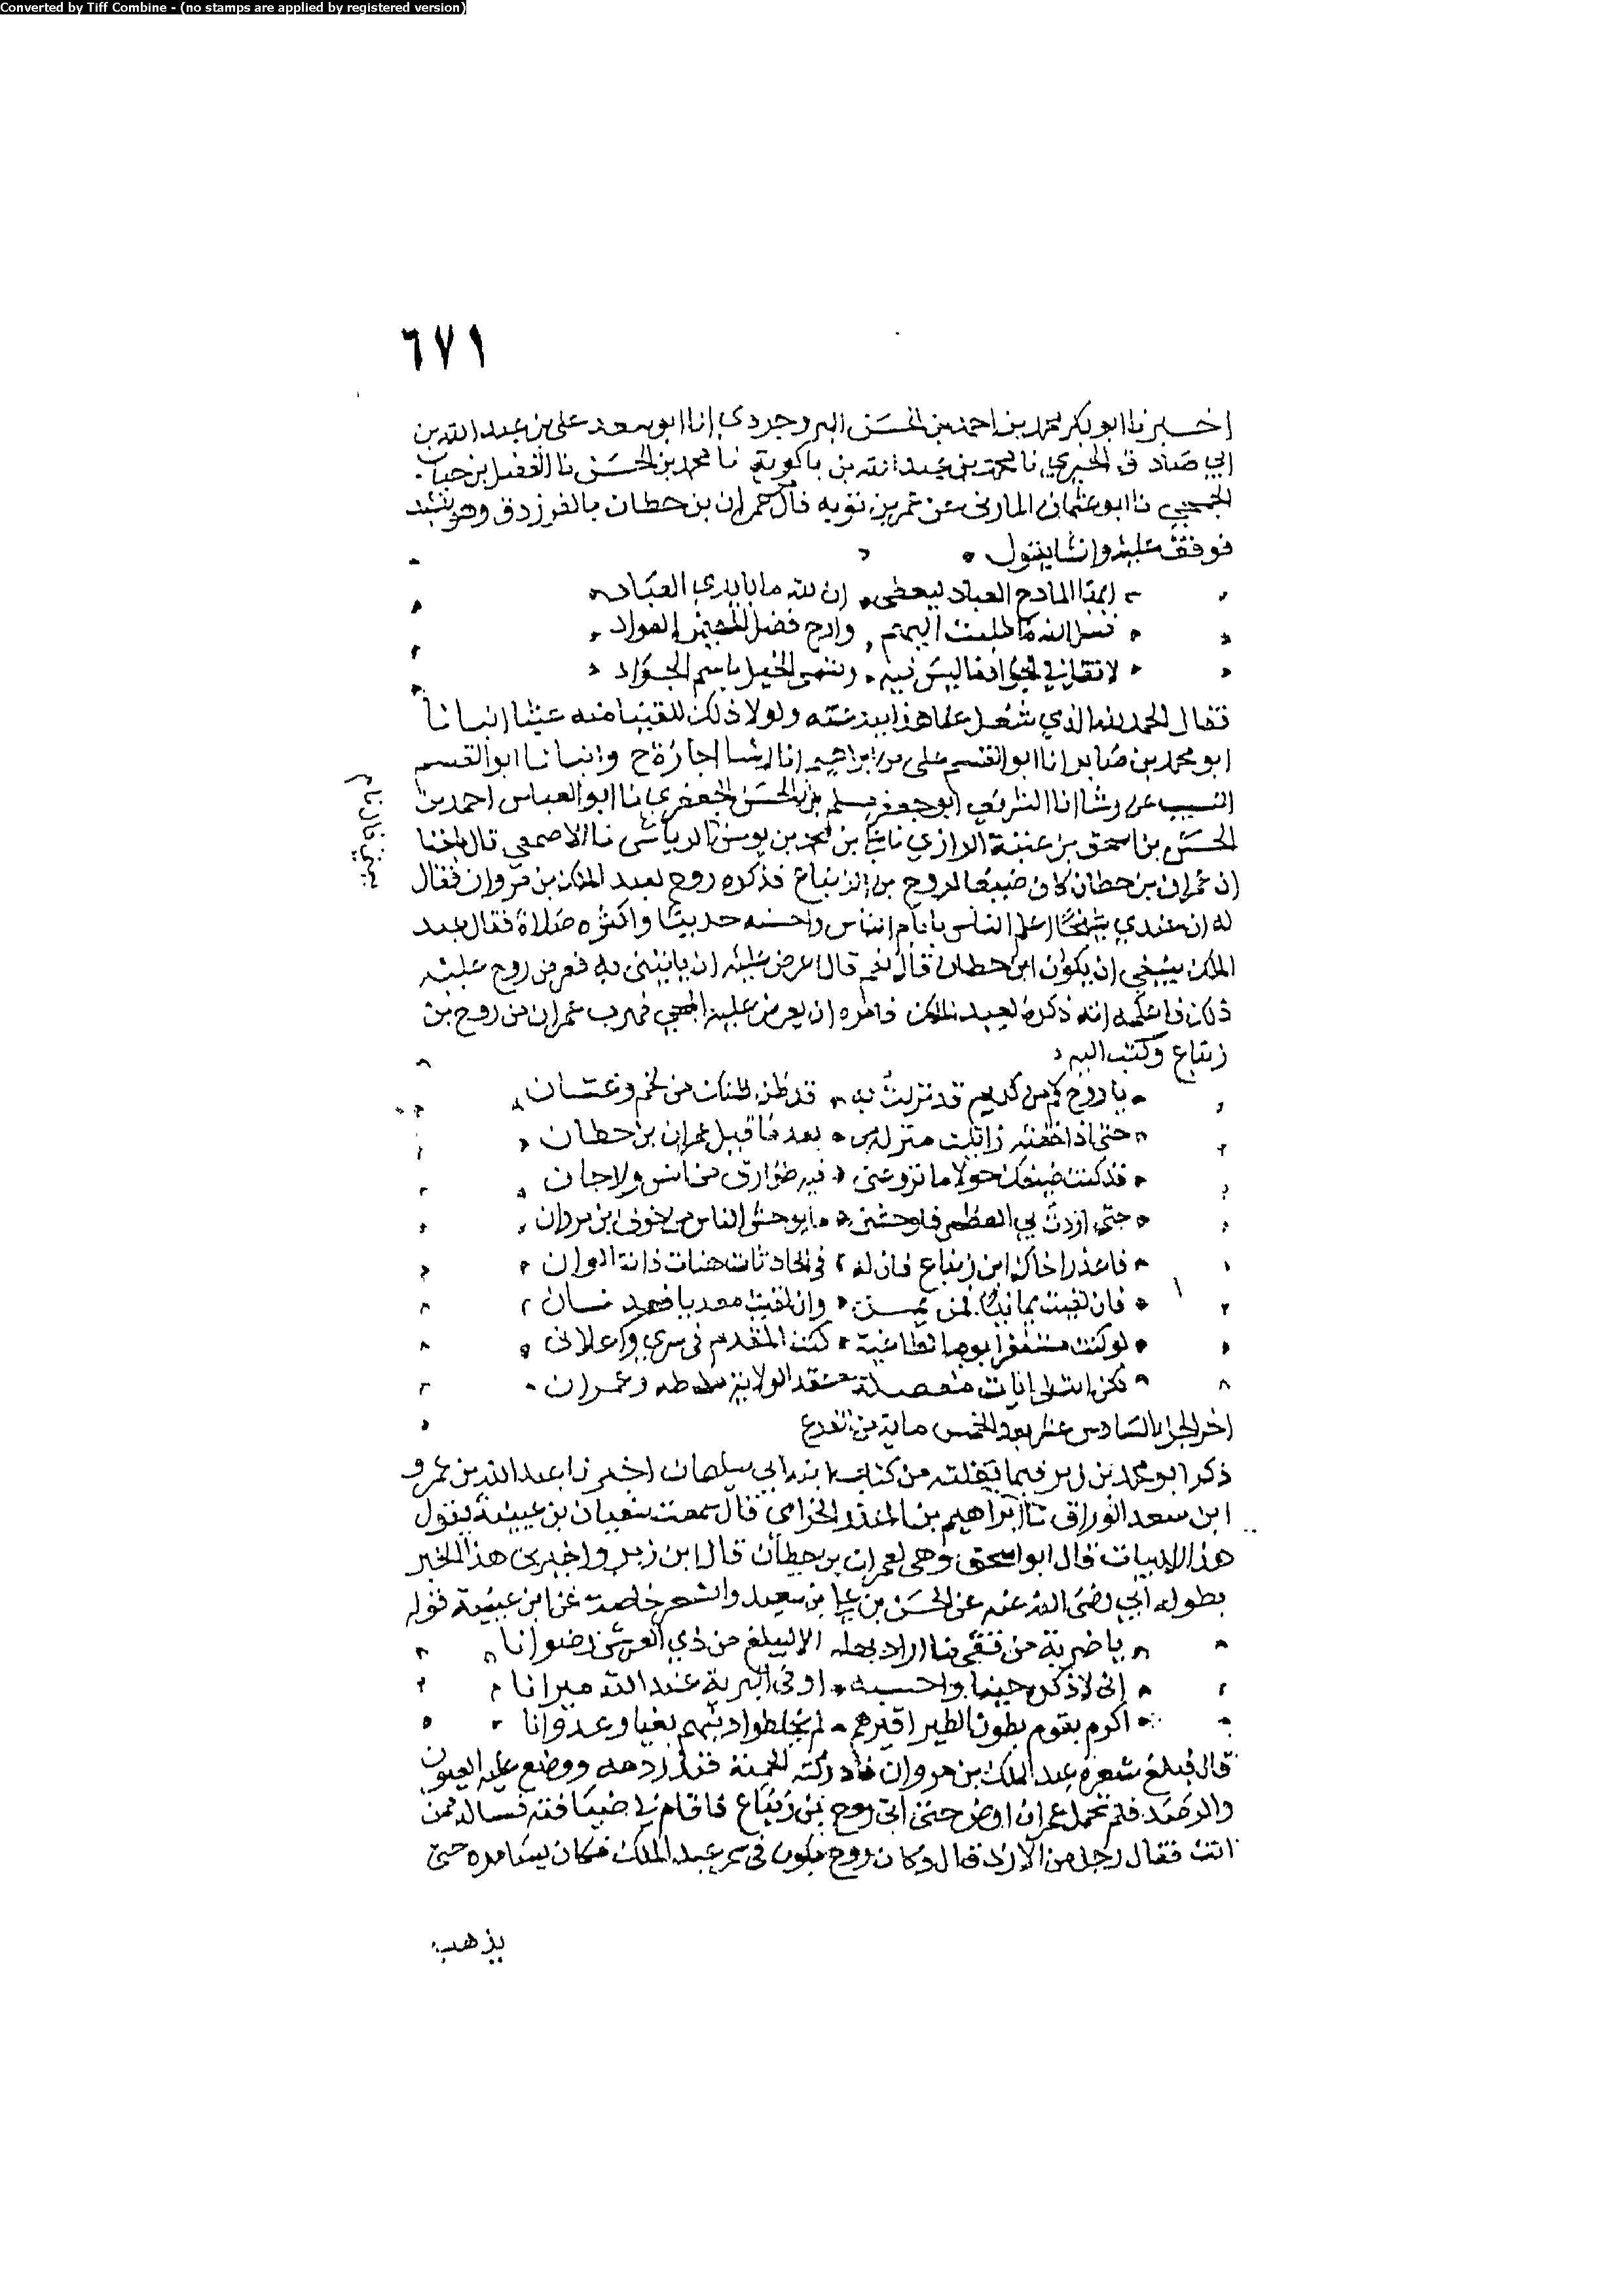 Converted by Tiff Combine - (no stamps are applied by registered version)
٦٧١
اخبرنا ابو بكر محمد بن احمد بن الحسن البروجردي انا ابو سعد علي بن عبد الله بن
ابي صادق الحيري نا محمد بن عبد الله بن باكويه نا محمد بن الحسن نا الفضل بن حباب
الجمحي نا ابو عثمان المازني عن عمر بن قال عمران بن حطان بالفرزدق وهو ينشد
فوقف عليه وانشا يقول
ايها المادح العباد ليعطى ان لله ما بايدي العباد
فسل الله ما طلبت اليهم وارج فضل العواد
لا تقل في الجواد ما ليس فيه وتسمى البخيل باسم الجواد
فقال الحمد لله الذي شغل عنا هذا ببدعته ولولا ذلك للقينا منه انبانا
ابو محمد بن صابر انا ابو القسم علي بن ابراهيم انا رشا اجازة ح وانبانا ابو القسم
النسيب عن رشا انا الشريف ابو جعفر مسلم بن الحسن الجعفري نا ابو العباس احمد بن
الحسن بن اسحق بن عتبة الرازي نا بن محمد بن يوسف نا الرياشي نا الاصمعي قال بلغنا
ان عمران بن حطان كان ضيفا لروح بن زنباع فذكره روح لعبد الملك بن مروان فقال
له ان عندي شيخا اعلم الناس بايام الناس واحسنه حديثا واكثره صلاة فقال عبد
الملك ينبغي ان يكون ابن حطان قال نعم قال اعرض عليه ان ياتيني به فعرض روح عليه
ذلك فاعلمه انه ذكره لعبد الملك فامره ان يعرض عليه المجي فهرب عمران من روح بن
زنباع وكتب اليه
يا روح كم من كريم قد نزلت به قد ظن ظنك من لخم وغسان
حتى اذا خفته زايلت منزله من بعد ما قيل عمران بن حطان
قد كنت ضيفك حولا ما تروعني فيه طوارق من انس ولا جان
حتى اردت بي العظمى فاوحشني ما يوحش الناس من خوف ابن مروان
فاعذر اخاك ابن زنباع فان له في الحادثات هنات ذات الوان
فان لقيت يمانيا فمن يمن وان لقيت معديا فعدناني
لو كنت مستغفرا يوما لطاغية كنت المقدم في سري واعلاني
لكن ابت لي ايات مفصلة عقد الولاية من طه وعمران
اخر الجزء السادس عشر بعد الخمس ماية من الفرع
ذكر ابو محمد بن زبر فيما نقلته من كتاب ابنه ابي سليمان اخبرنا عبد الله بن عمرو
ابن سعد الوراق نا ابراهيم بن المنذر الحزامي قال سمعت سفيان بن عيينة يقول
هذا الابيات قال ابو اسحق وهي لعمران بن حطان قال ابن زبر واخبرني هذا الخبر
بطوله ابي رضي الله عنه عن الحسن بن علي بن سعيد والشعر خاصة عن ابن عيينة قوله
يا ضربة من تقي ما اراد بها الا ليبلغ من ذي العرش رضوانا
اني لاذكره حينا واحسبه اوفى البرية عند الله ميزانا
اكرم بقوم بطون الطير اقبرهم لم يخلطوا دينهم بغيا وعدوانا
قال فبلغ شعره عبد الملك بن مروان فادركته الحمية فنذر دمه ووضع عليه العيون
والرصد فلم تحمل عمران ارض حتى اتى روح بن زنباع فاقام في ضيافته فساله ممن
انت فقال رجل من الازد قال وكان روح يكون في سمر عبد الملك فكان يسامره حتى
يذهب